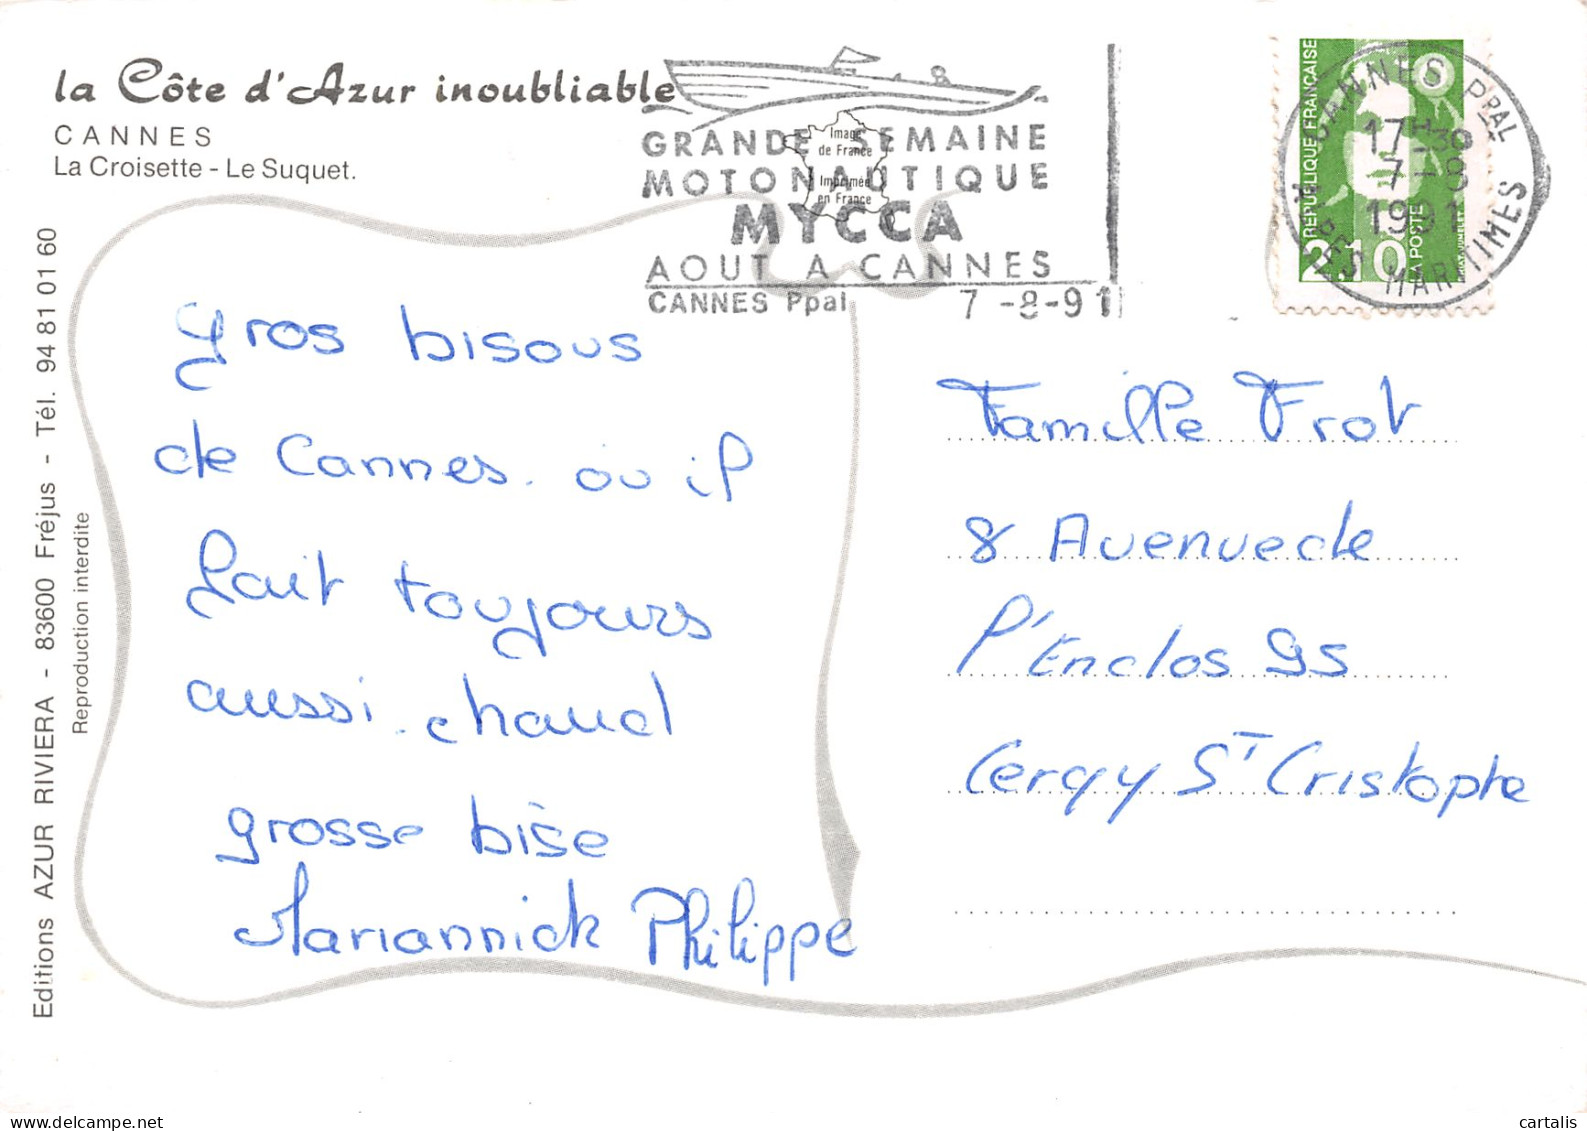 la Côte d'Azur inoubliable
CANNES
La Croisette - Le Suquet.
GRANDE SEMAINE
MOTONAUTIQUE
MYCCA
AOUT A CANNES
CANNES Ppal 7-8-91
Image
de France
Imprimée
en France
CANNES PPAL
17H30
7-8
1991
ALPES MARITIMES
REPUBLIQUE FRANÇAISE
2,10
LA POSTE
Editions AZUR RIVIERA - 83600 Fréjus - Tél. 94 81 01 60
Reproduction interdite
Gros bisous
de Cannes. où il
fait toujours
aussi. chaud
grosse bise
Mariannick Philippe
Famille Frot
8 Avenuede
l'Enclos 95
Cergy ST Cristophe
www.delcampe.net
cartalis